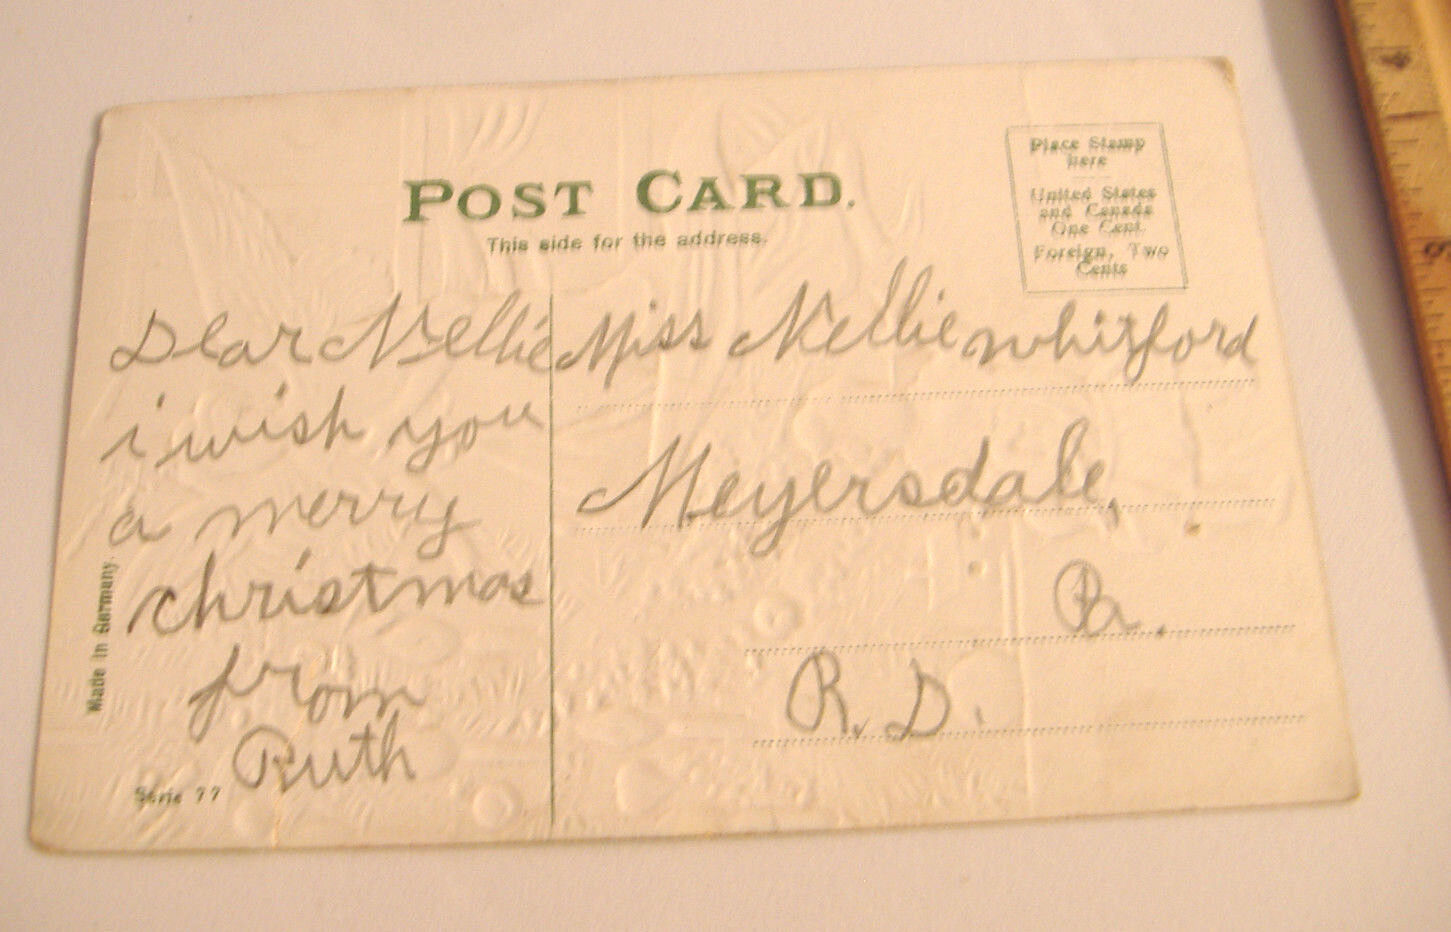 POST CARD.
This side for the address.
Place Stamp
here
United States
and Canada
One Cent.
Foreign, Two
Cents
Dear Nellie
i wish you
a merry
christmas
from
Ruth
Miss Nellie Whitford
Meyersdale,
Pa.
R. D.
Made in Germany.
Serie 77
4